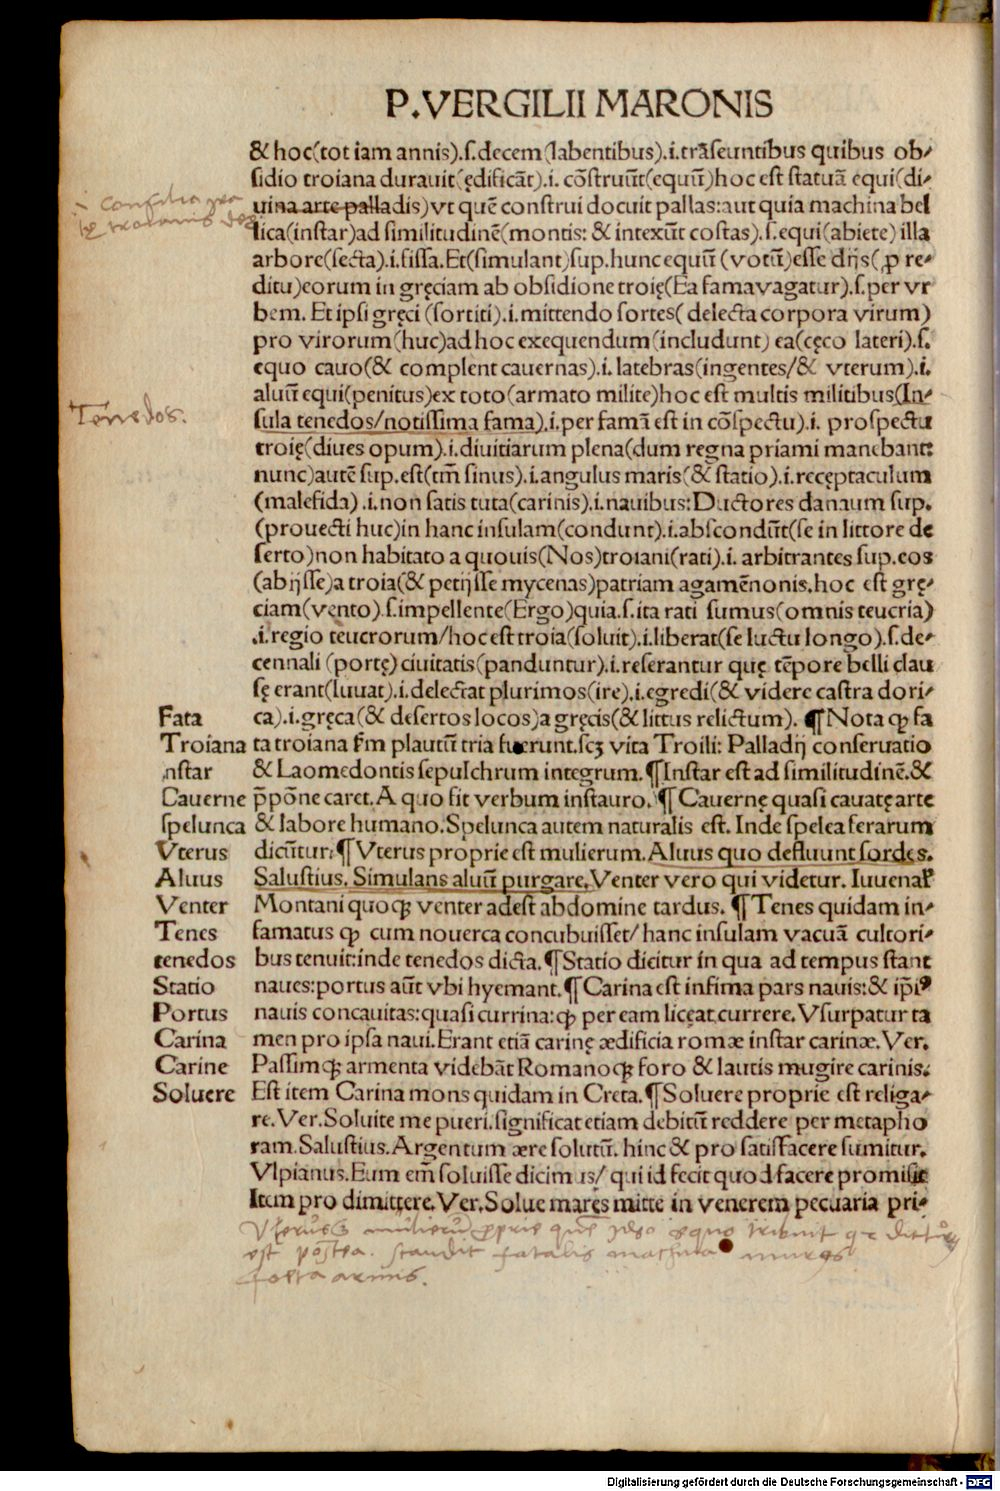 P.VERGILII MARONIS
& hoc(tot iam annis).ſ.decem(labentibus).i.trãſeuntibus quibus ob⸗
ſidio troiana durauit(ędificãt).i. cõſtruũt(equũ)hoc eſt ſtatuã equi(di⸗
uina arte palladis)vt quẽ construi docuit pallas:aut quia machina bel
lica(inſtar)ad ſimilitudinẽ(montis: & intexũt coſtas).ſ.equi(abiete) illa
arbore(ſecta).i.fiſſa.Et(ſimulant)ſup.hunc equũ (votũ)eſſe dijs(ꝓ re⸗
ditu)eorum in gręciam ab obſidione troię(Ea fama vagatur).ſ.per vr
bem. Et ipſi gręci (ſortiti).i.mittendo ſortes( delecta corpora virum)
pro virorum(huc)ad hoc exequendum(includunt) ea(cęco lateri).ſ.
equo cauo(& complent cauernas).i. latebras(ingentes/& vterum).i.
aluũ equi(penitus)ex toto(armato milite)hoc eſt multis militibus(In⸗
Tenedos.
ſula tenedos/notiſſima fama).i.per famã eſt in cõſpectu).i. proſpectu
troię(diues opum).i.diuitiarum plena(dum regna priami manebant:
nunc)autẽ ſup.eſt(tm̃ ſinus).i.angulus maris(& ſtatio).i.recęptaculum
(malefida) .i.non ſatis tuta(carinis).i.nauibus:Ductores danaum ſup.
(prouecti huc)in hanc inſulam(condunt).i.abſcondũt(ſe in littore de
ſerto)non habitato a quouis(Nos)troiani(rati).i. arbitrantes ſup.eos
(abijſſe)a troia(& petijſſe mycenas)patriam agamẽnonis.hoc eſt grę⸗
ciam(vento).ſ.impellente(Ergo)quia.ſ.ita rati ſumus(omnis teucria)
.i.regio teucrorum/hoc eſt troia(ſoluit).i.liberat(ſe luctu longo).ſ.de⸗
cennali (portę) ciuitatis(panduntur).i.reſerantur quę tẽpore belli clau
ſę erant(Iuuat).i.delectat plurimos(ire).i.egredi(& videre caſtra dori⸗
Fata ca).i.gręca(& deſertos locos)a gręcis(& littus relictum). ¶Nota ꝙ fa
Troiana ta troiana ſm plautũ tria fuerunt.ſcꝫ vita Troili: Palladij conſeruatio
nſtar & Laomedontis ſepulchrum integrum.¶Inſtar eſt ad ſimilitudinẽ.&
Cauerne p̃põne caret.A quo fit verbum inſtauro. ¶ Cauernę quaſi cauatę arte
ſpelunca & labore humano.Spelunca autem naturalis eſt. Inde ſpelea ferarum
Vterus dicũtur:¶ Vterus proprie eſt mulierum. Aluus quo defluunt ſordes.
Aluus Saluſtius. Simulans aluũ purgare.Venter vero qui videtur. Iuuenal̕
Venter Montani quoqꝫ venter adeſt abdomine tardus. ¶Tenes quidam in⸗
Tenes famatus ꝙ cum nouerca concubuiſſet/ hanc inſulam vacuã cultori⸗
tenedos bus tenuit:inde tenedos dicta.¶Statio dicitur in qua ad tempus ſtant
Statio naues:portus aũt vbi hyemant.¶Carina eſt infima pars nauis:& ip̃iꝰ
Portus nauis concauitas:quaſi currina:ꝙ per eam liceat currere.Vſurpatur ta
Carina men pro ipſa naui.Erant etiã carinę ædificia romæ inſtar carinæ.Ver.
Carine Paſſimqꝫ armenta videbãt Romanoqꝫ foro & lautis mugire carinis.
Soluere Eſt item Carina mons quidam in Creta.¶Soluere proprie eſt religa⸗
re.Ver.Soluite me pueri.ſignificat etiam debitũ reddere per metapho
ram.Saluſtius.Argentum ære ſolutũ. hinc & pro ſatiſfacere ſumitur.
Vlpianus.Eum em̃ ſoluiſſe dicimus/ qui id fecit quod facere promiſit
Item pro dimittere. Ver.Solue mares mitte in venerem pecuaria pri⸗
Vterus mulierũ proprie ideo equo tribuit
est postea. scandit fatalis machina muros
foeta armis.
Digitalisierung gefördert durch die Deutsche Forschungsgemeinschaft - DFG